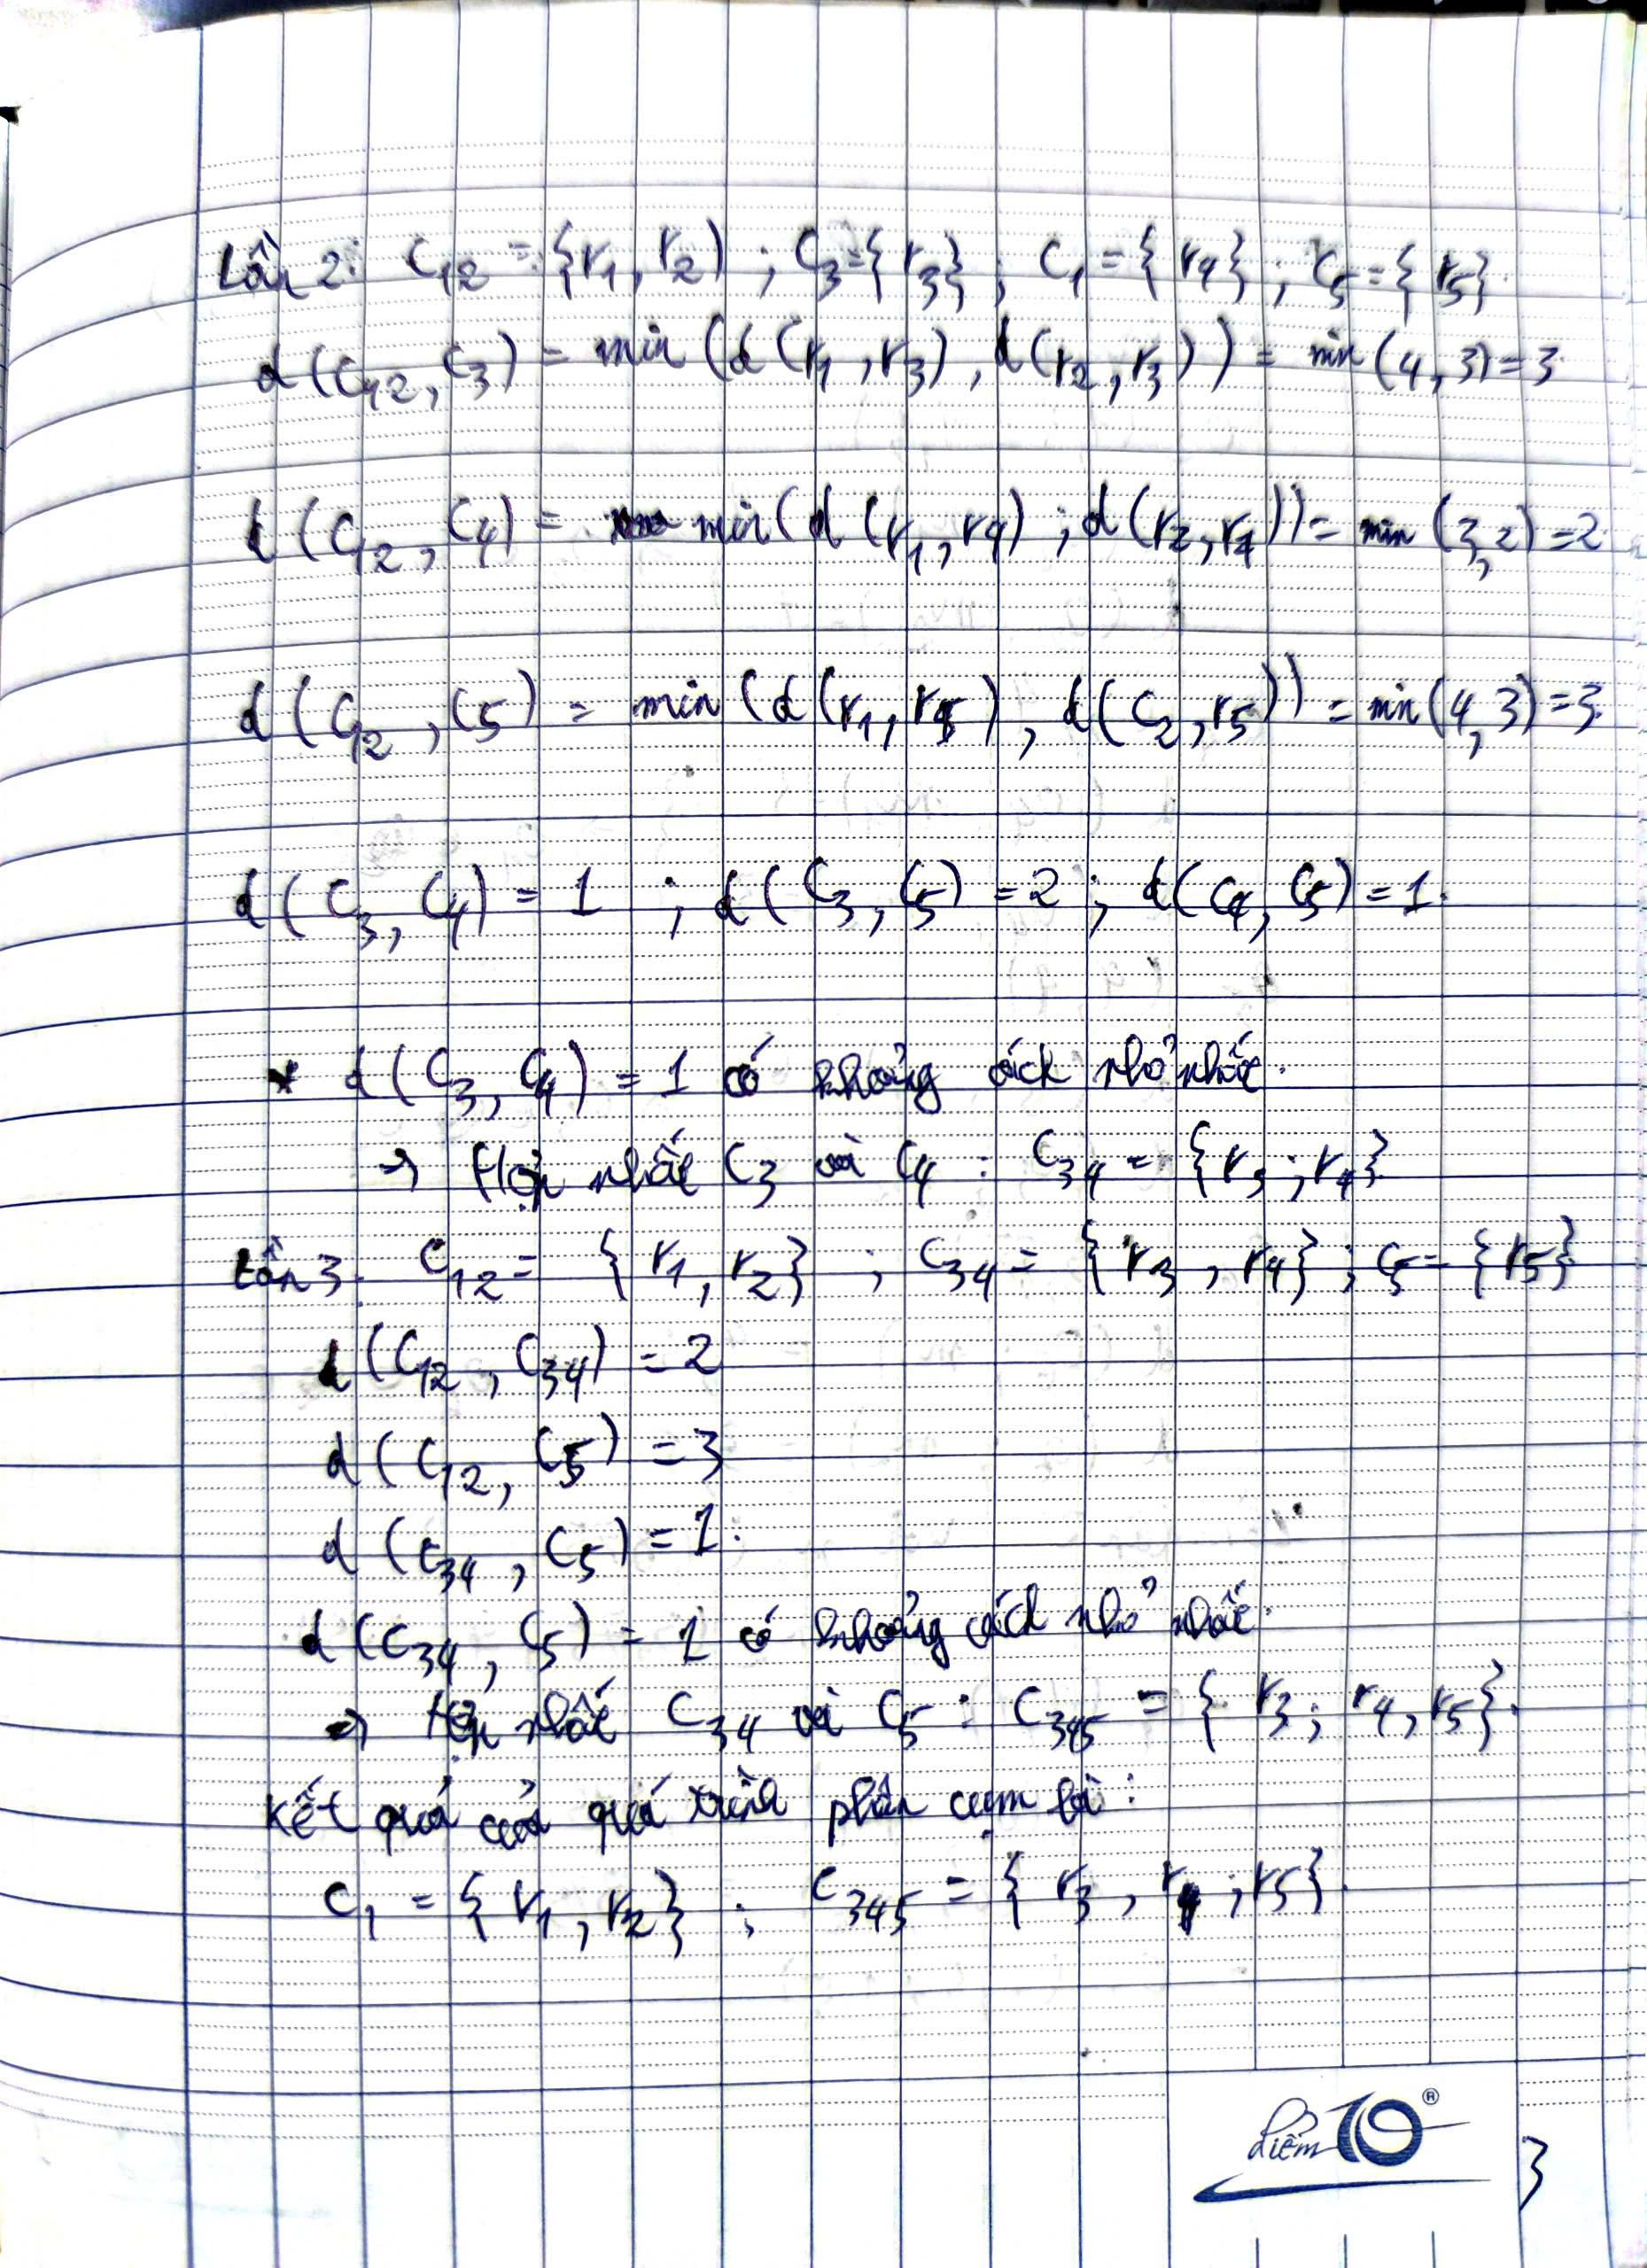 Lần 2: C12 = {r1, r2) ; C3 = {r3} ; C1 = {r4} ; C5 = {r5}.
d(C12, C3) = min (d(r1, r3), d(r2, r3)) = min (4, 3) = 3
d(C12, C4) = min(d(r1, r4) ; d(r2, r4)) = min (3, 2) = 2
d(C12, C5) = min (d(r1, r5), d(C2, r5)) = min(4, 3) = 3.
d(C3, C4) = 1 ; d(C3, C5) = 2 ; d(C4, C5) = 1.
* d(C3, C4) = 1 có khoảng cách nhỏ nhất.
→ Hợp nhất C3 và C4 : C34 = {r3 ; r4}
Lần 3. C12 = {r1, r2} ; C34 = {r3, r4} ; C5 = {r5}
d(C12, C34) = 2
d(C12, C5) = 3
d(C34, C5) = 1.
d(C34, C5) = 1 có khoảng cách nhỏ nhất.
⇒ Hợp nhất C34 và C5 : C345 = {r3 ; r4, r5}.
Kết quả của quá trình phân cụm là :
C1 = {r1, r2} ; C345 = {r3, r4 ; r5}.
Điểm 10 ®
3